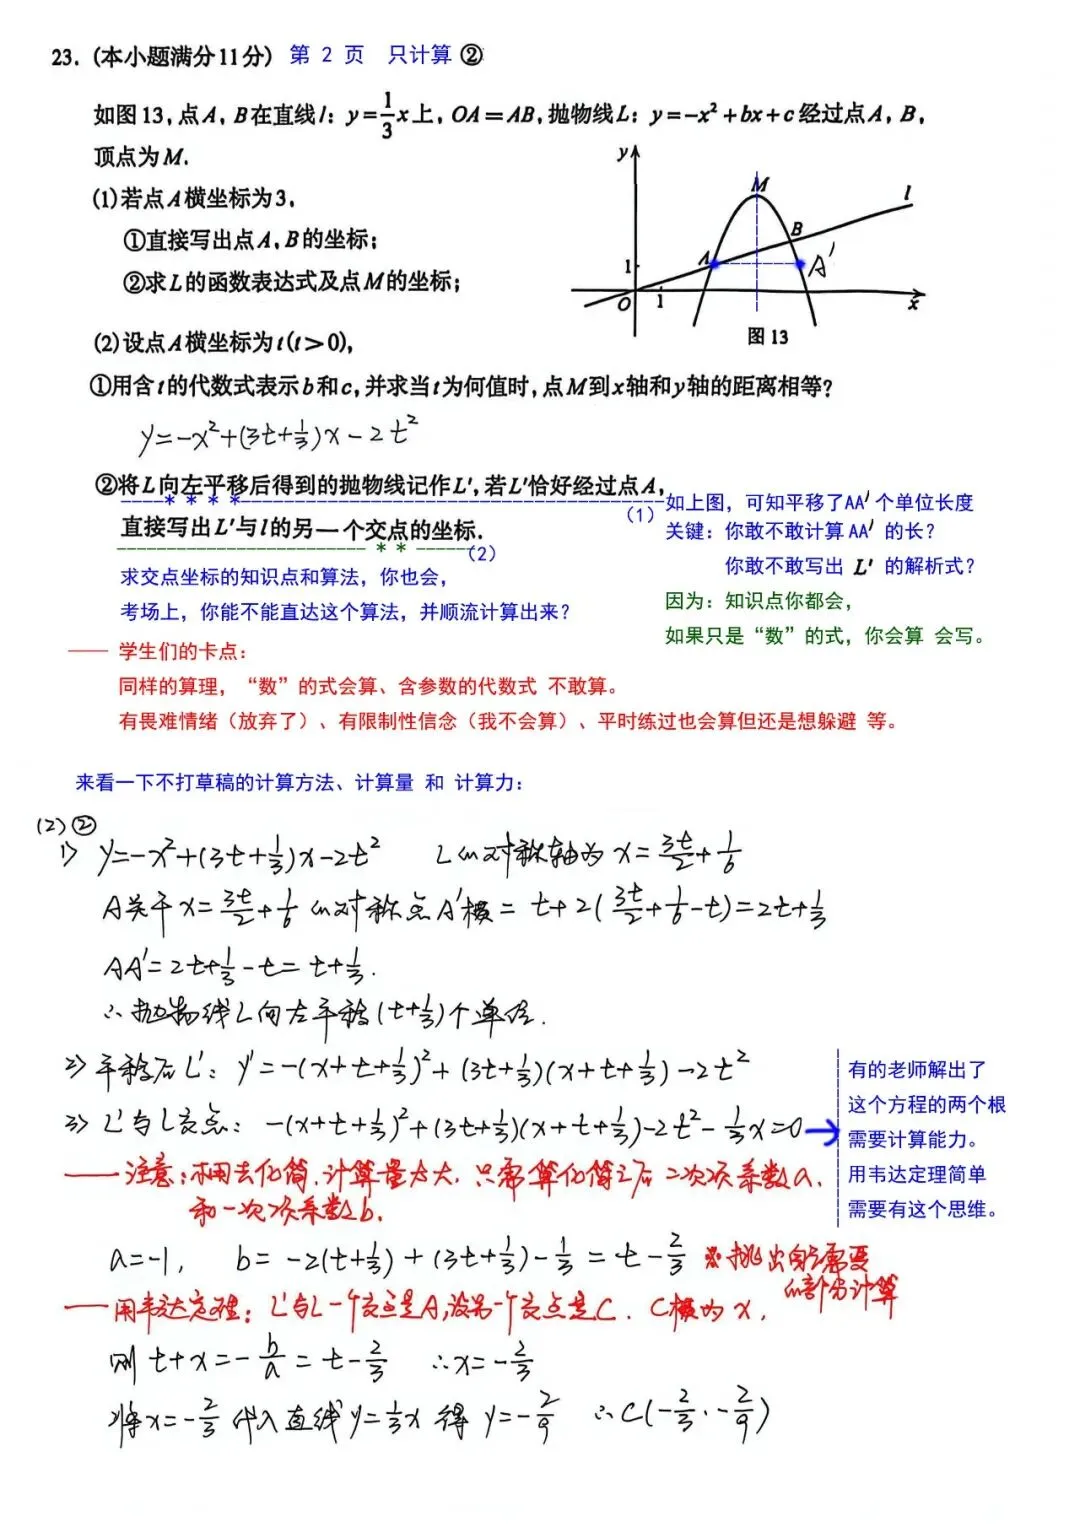 23. (本小题满分11分) 第 2 页 只计算 ②
如图13,点A,B在直线l: y=1/3x上,OA=AB,抛物线L: y=-x²+bx+c经过点A,B,
顶点为M.
(1)若点A横坐标为3.
①直接写出点A,B的坐标;
②求L的函数表达式及点M的坐标;
y
M
l
B
A
A′
1
O
1
x
图13
(2)设点A横坐标为t(t>0),
①用含t的代数式表示b和c,并求当t为何值时,点M到x轴和y轴的距离相等?
y=-x²+(3t+1/3)x-2t²
②将L向左平移后得到的抛物线记作L′,若L′恰好经过点A,
****
(1)
直接写出L′与l的另一个交点的坐标.
**
(2)
如上图,可知平移了AA′个单位长度
关键:你敢不敢计算AA′的长?
你敢不敢写出 L′ 的解析式?
因为:知识点你都会,
如果只是“数”的式,你会算 会写。
求交点坐标的知识点和算法,你也会,
考场上,你能不能直达这个算法,并顺流计算出来?
—— 学生们的卡点:
同样的算理,“数”的式会算、含参数的代数式 不敢算。
有畏难情绪(放弃了)、有限制性信念(我不会算)、平时练过也会算但还是想躲避 等。
来看一下不打草稿的计算方法、计算量 和 计算力:
(2)②
1) y=-x²+(3t+1/3)x-2t² L的对称轴为 x=3t/2+1/6
A关于x=3t/2+1/6的对称点A′横=t+2(3t/2+1/6-t)=2t+1/3
AA′=2t+1/3-t=t+1/3.
∴抛物线L向左平移(t+1/3)个单位.
2) 平移后L′: y′=-(x+t+1/3)²+(3t+1/3)(x+t+1/3)-2t²
3) L′与l交点: -(x+t+1/3)²+(3t+1/3)(x+t+1/3)-2t²-1/3x=0→
有的老师解出了
这个方程的两个根
需要计算能力。
用韦达定理简单
需要有这个思维。
——注意:不用去化简,计算量太大.只需算化简之后二次项系数a,
和一次项系数b.
a=-1, b=-2(t+1/3)+(3t+1/3)-1/3=t-2/3 ※挑出所需要
的部分计算
——用韦达定理: L′与l一个交点是A,设另一个交点是C. C横为x,
则 t+x=-b/a=t-2/3 ∴x=-2/3
将x=-2/3代入直线y=1/3x得 y=-2/9 ∴C(-2/3,-2/9)